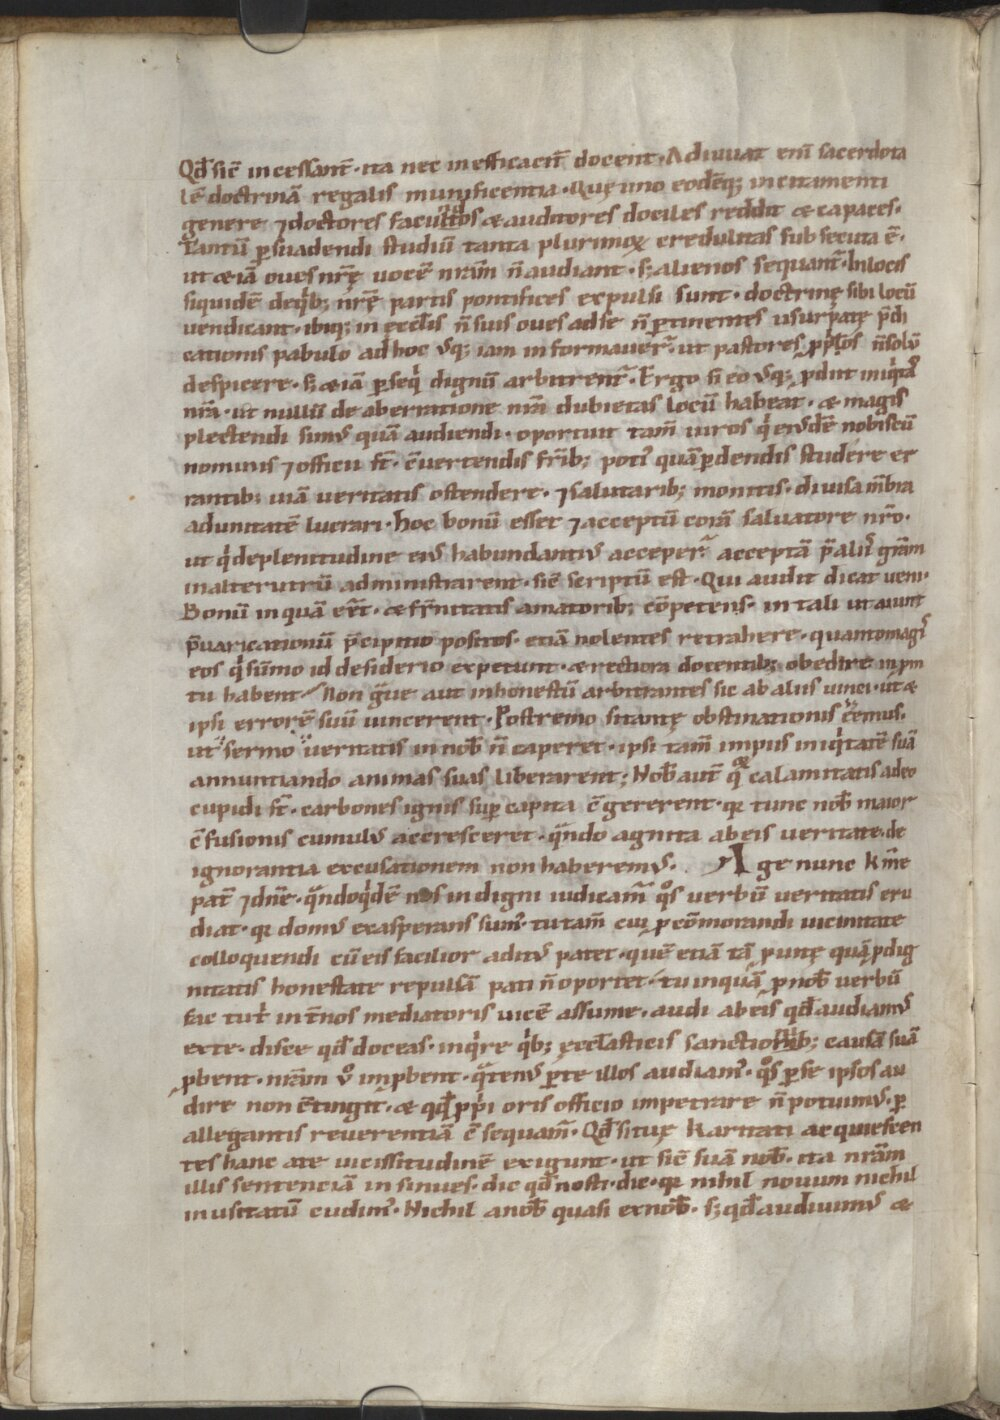 Qd̄ sic̄ incessant̄· ita nec inefficacit̄ docent· Adiuuat eni᷈ sacerdota
lē doctrinā regalis munificentia· Quę uno eodēq; incitamenti
genere ⁊ doctores facundos & auditores dociles reddit & capaces·
Tantū ꝑsuadendi studiū tanta plurimoꝝ credulitas subsecuta ē·
ut & iā oues nr̄ę uocē nr̄am n̄ audiant· sꝫ alienos sequant᷑· In locis
siquidē de qͥbꝫ nr̄ę partis pontifices expulsi sunt· doctrinę sibi locū
uendicant· ibiqꝫ in ęccl̄is n̄ suis oues ad se n̄ ꝑtinentes usurpatę p̄di
cationis pabulo ad hoc usqꝫ iam informauer᷑· ut pastores ꝓp̄os n̄ solū
despicere· sꝫ & iā ꝑseqͥ dignū arbitrent᷑· Ergo si eo usqꝫ ꝓdiit iniqͥtas
nr̄a· ut nullū de aberratione nr̄a dubietas locū habeat· & magis
plectendi sumꝰ quā audiendi· oportuit tam̄ uiros qͥ eiusdē nobiscū
nominis ⁊ officii st̄· euertendis fr̄ibꝫ potiꝰ quā ꝑdendis studere er
rantibꝫ uiā ueritatis ostendere· ⁊ salutaribꝫ monitis· diuisa m̄bra
ad unitatē lucrari· hoc bonū esset ⁊ acceptū corā saluatore nr̄o·
ut qͥ de plenitudine eiꝰ habundantiꝰ acceper᷑ acceptā p̄ aliis gr̄am
in alterutrū administrarent· sic̄ scriptū est· Qui audit dicat ueni·
Bonū inquā er̄t· & fr̄nitatis amatoribꝫ cōpetens· in tali ut aiunt
p̄uaricationū p̄cipitio positos· etiā nolentes retrahere· quanto magis
eos qͥ sūmo id desiderio expetunt· & rectiora docentibꝫ obedire in ꝓm
tu habent· Non graue aut inhonestū arbitrantes sic ab aliis uinci· ut &
ipsi errorē suū uincerent· Postremo si tantę obstinationis c̄emus·
ut sermo ueritatis in nob̄ n̄ caperet· ipsi tam̄ impiis iniqͥtatē suā
annuntiando animas suas liberarent; Nob̄ aut̄ qꝫ calamitatis adeo
cupidi st̄· carbones ignis suꝑ capita c̄gererent· qꝛ tunc nob̄ maior
c̄fusionis cumulꝰ accresceret· qͣndo agnita ab eis ueritate· de
ignorantia excusationem non haberemꝰ· Age nunc km̄e
pat̄ ⁊ dn̄e· qͣndoqͥdē nos indigni iudicam᷑ qͦs uerbū ueritatis eru
diat· qꝛ domꝰ exasperans sumꝰ· tu tam̄ cui ꝓ com̄orandi uicinitate
colloquendi cū eis facilior aditꝰ patet· quē etiā tā ꝓ uitę quā ꝓ dig
nitatis honestate repulsā pati n̄ oportet· tu inquā ꝓ nob̄ uerbū
fac tu int̄ nos mediatoris uicē assume· audi ab eis qd̄ audiamꝰ
ex te· disce qd̄ doceas· inqͥre qͥbꝫ ęccl̄asticis sanctionibꝫ causā suā
ꝓbent· nr̄am ů imꝓbent· qͣtenꝰ ꝑ te illos audiamꝰ· qͦs ꝑ se ipsos au
dire non c̄tingit· & qd̄ ꝓp̄i oris officio impetrare n̄ potuimꝰ· ꝑ
allegantis reuerentiā c̄sequam᷑· Qd̄ si tuę karitati acquiescen
tes hanc a te uicissitudinē exigunt· ut sic̄ suā nob̄· ita nr̄am
illis sentenciā insinues· dic qd̄ nosti· dic· qꝛ nihil nouum nichil
inusitatū cudimꝰ· Nichil a nob̄ quasi ex nob̄· sꝫ qd̄ audiuimꝰ &